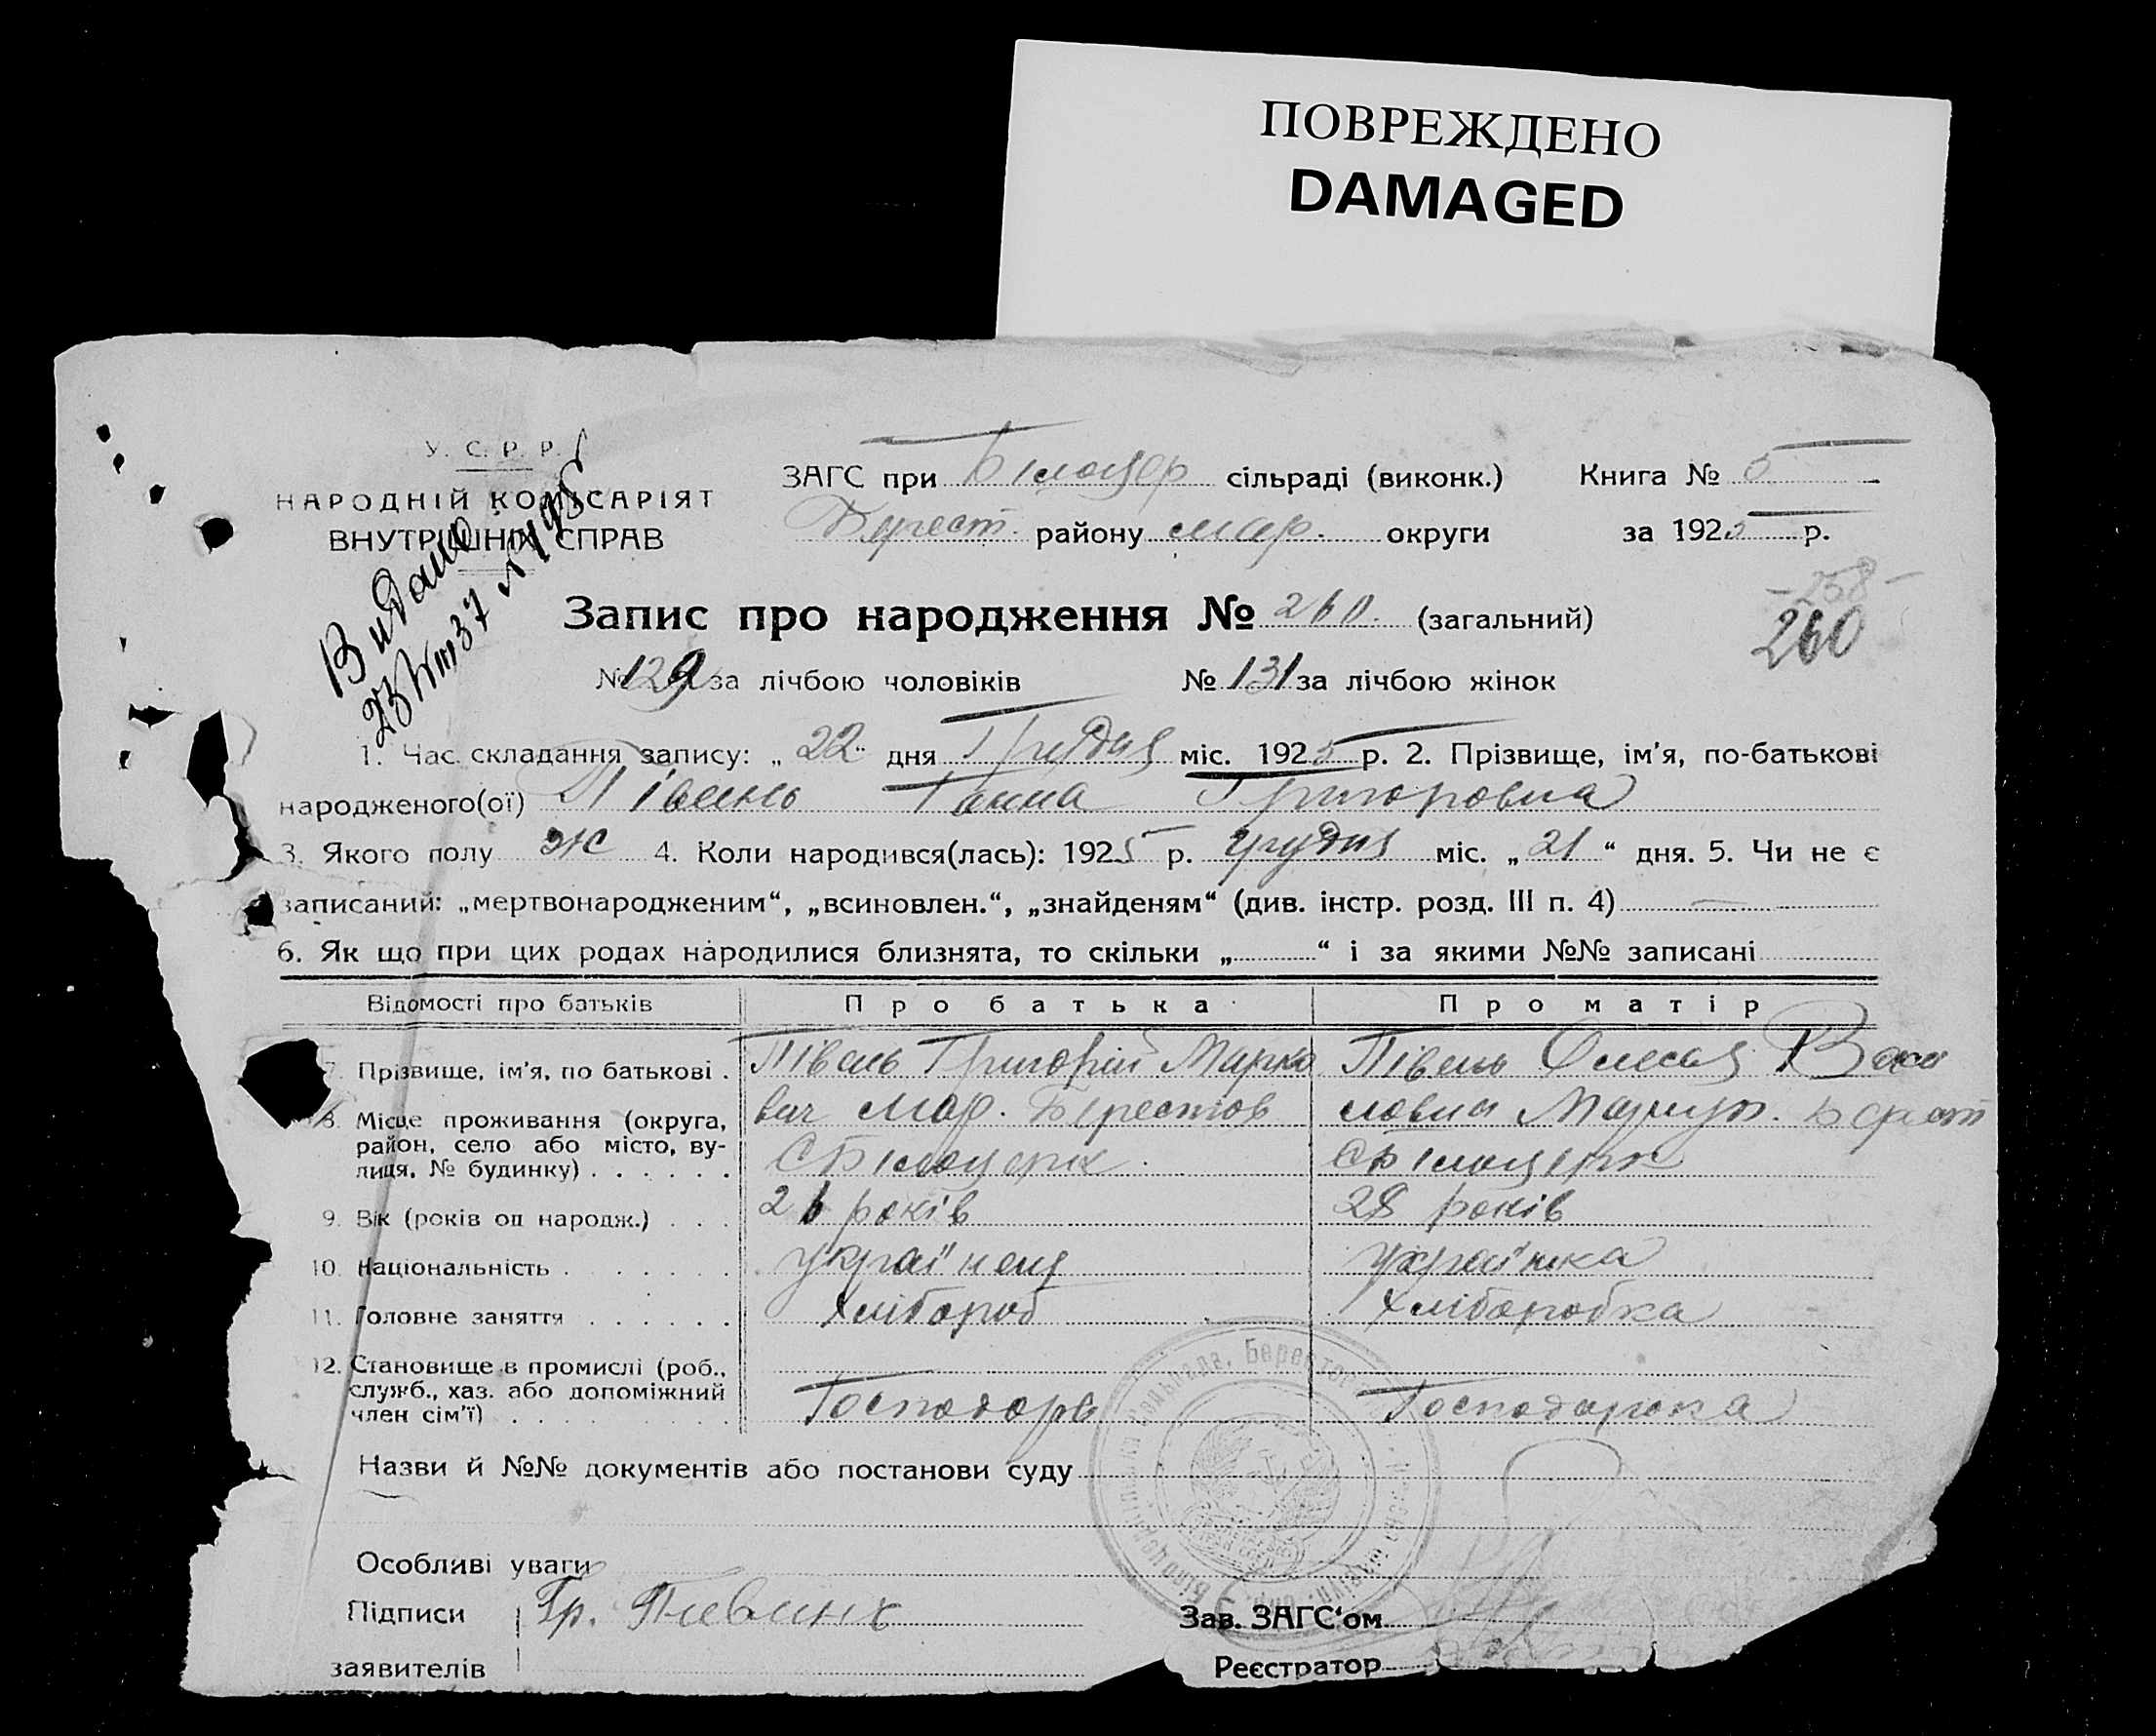 ПОВРЕЖДЕНО
DAMAGED
У. С. Р. Р.
НАРОДНІЙ КОМІСАРІЯТ
ВНУТРІШНІХ СПРАВ
Видано
23
37
ЗАГС при Білоцер сільраді (виконк.) Книга № 5
Берест. району мар. округи за 1925 р.
Запис про народження № 260. (загальний)
258
260
№ 129 за лічбою чоловіків № 131 за лічбою жінок
1. Час складання запису: „ 22 “ дня Грудня міс. 1925 р. 2. Прізвище, ім’я, по-батькові
народженого(ої) Півень Ганна Григоровна
3. Якого полу ж 4. Коли народився(лась): 1925 р. грудня міс. „ 21 “ дня. 5. Чи не є
записаний: „мертвонародженим“, „всиновлен.“, „знайденям“ (див. інстр. розд. III п. 4)
6. Як що при цих родах народилися близнята, то скільки „ “ і за якими №№ записані
Відомості про батьків Про батька Про матір
7. Прізвище, ім’я, по батькові . Півень Григорій Марко Півень Олеся Васи
8. Місце проживання (округа, вич мар. Берестов ловна Маріуп. Берест
район, село або місто, ву-
лиця, № будинку) . . . . . . С Білоцерк С Білоцерк
9. Вік (років од народж.) . . . 26 років 28 років
10. Національність . . . . . . . українец українка
11. Головне заняття . . . . . . хлібороб хліборобка
12. Становище в промислі (роб.,
служб., хаз. або допоміжний Господарь Господарька
член сім’ї) . . . . . . . . .
Назви й №№ документів або постанови суду
Особливі уваги
Підписи Гр. Пивинь Зав. ЗАГС‘ом
заявителів Реєстратор